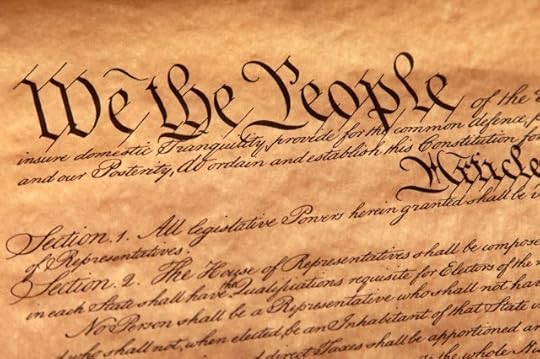 We the People of the
insure domestic Tranquility, provide for the common defence,
and our Posterity, do ordain and establish this Constitution for
Article
Section. 1. All legislative Powers herein granted shall be
of Representatives.
Section. 2. The House of Representatives shall be compose
in each State shall have the Qualifications requisite for Electors of the
No Person shall be a Representative who shall not ha
who shall not, when elected, be an Inhabitant of that State
and direct Taxes shall be apportioned
the whole